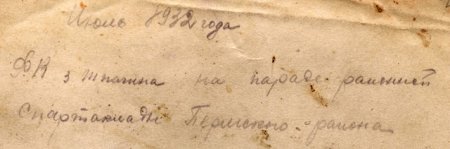 Июль 1932 года
ФК на параде районной
Спартакиады Пермского района